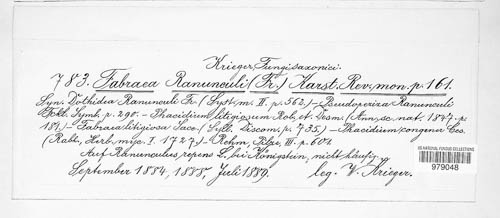 Krieger, Fungi saxonici.
783. Fabraea Ranunculi (Fr.) Karst. Rev. mon. p. 161.
Syn. Dothidea Ranunculi Fr. (Syst. m. II. p. 562.) – Pseudopeziza Ranunculi
Fckl. Symb. p. 290. – Phacidium litigiosum Rob. et Desm. (Ann. sc. nat. 1847. p.
181.) – Fabraea litigiosa Sacc. (Syll. Discom. p. 735.) – Phacidium congener Ces.
(Rabh. Herb. myc. I. 1727.) – Rehm, Pilze, III. p. 601.
Auf Ranunculus repens L. bei Königstein, nicht häufig.
September 1884, 1885, Juli 1889. leg. W. Krieger.
US NATIONAL FUNGUS COLLECTIONS
979048